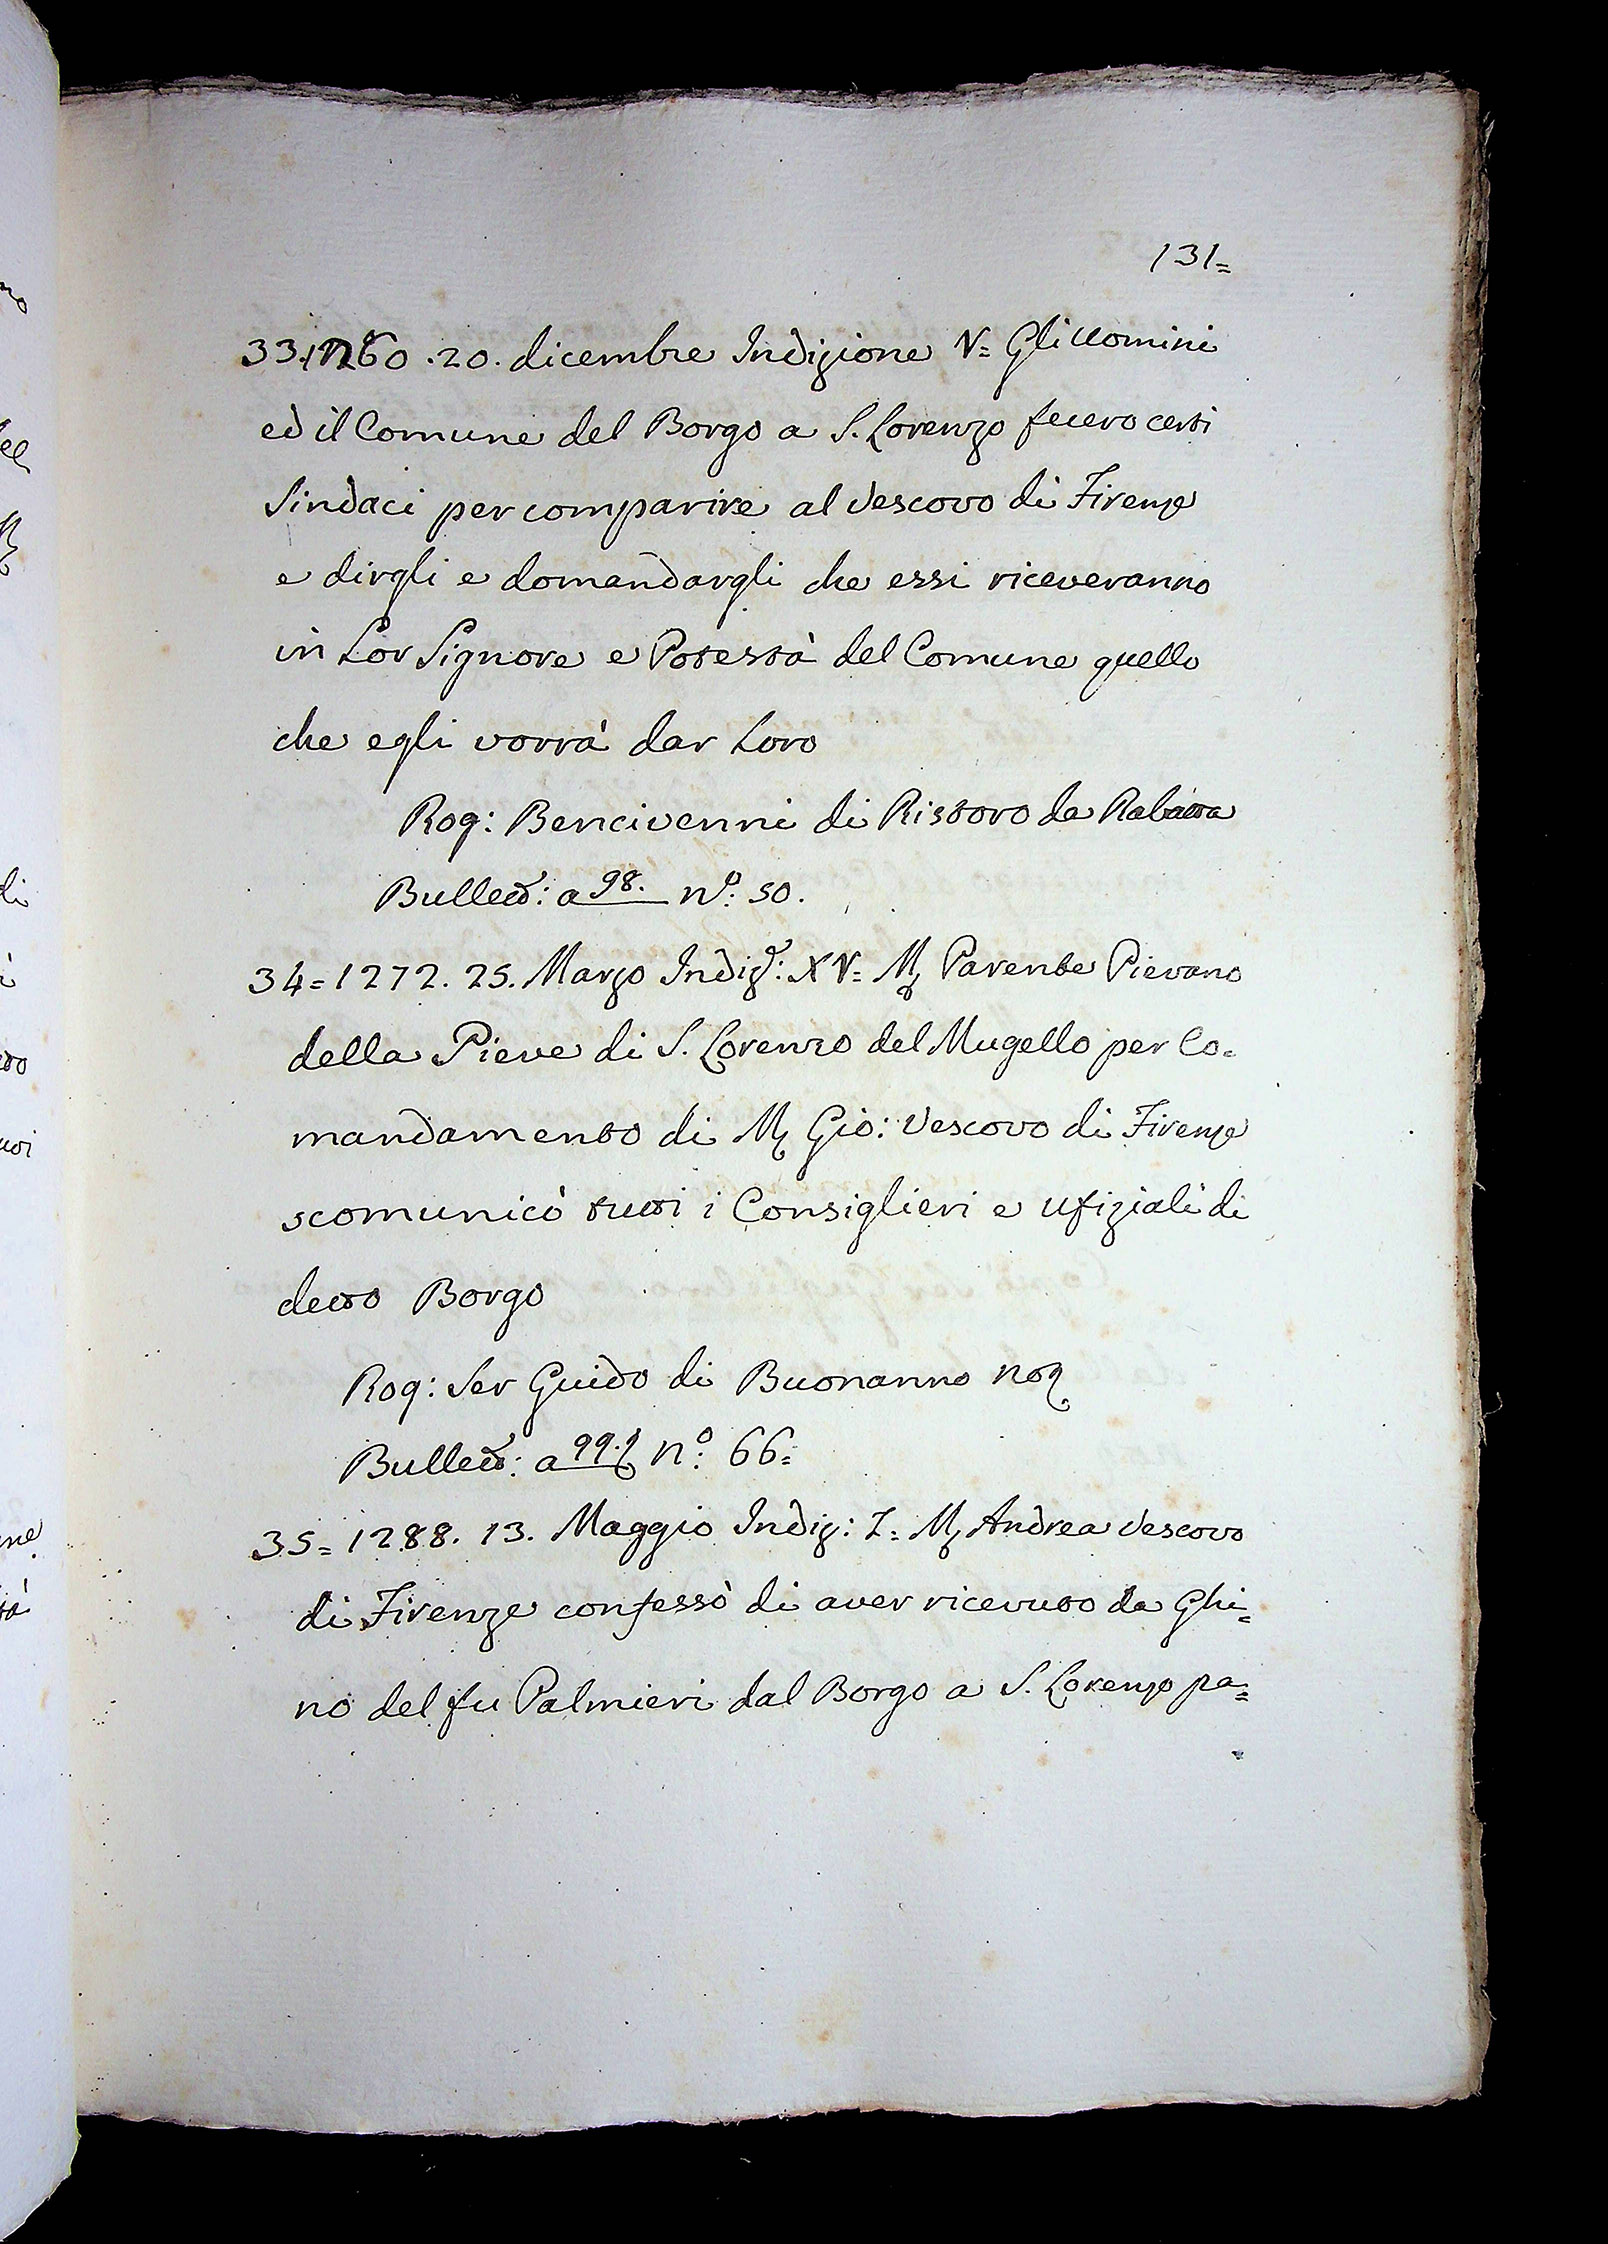 131=
33. 1260. 20. dicembre Indizione V= Gli uomini
ed il Comune del Borgo a S. Lorenzo fecero certi
Sindaci per comparire al Vescovo di Firenze
e dirgli e domandargli che essi riceveranno
in Lor Signore e Potestà del Comune quello
che egli vorrà dar Loro
Rog: Bencivenni di Ristoro da Rabatta
Bullett: a 98. nº: 50.
34= 1272. 25. Marzo Indiz: XV= M Parente Pievano
della Pieve di S. Lorenzo del Mugello per Co=
mandamento di M Gio: Vescovo di Firenze
scomunicò tutti i Consiglieri e ufiziali di
detto Borgo
Rog: Ser Guido di Buonanno not
Bullett: a 99. nº: 66=
35= 1288. 13. Maggio Indiz: I= M Andrea Vescovo
di Firenze confessò di aver ricevuto da Ghi=
no del fu Palmieri dal Borgo a S. Lorenzo pa=